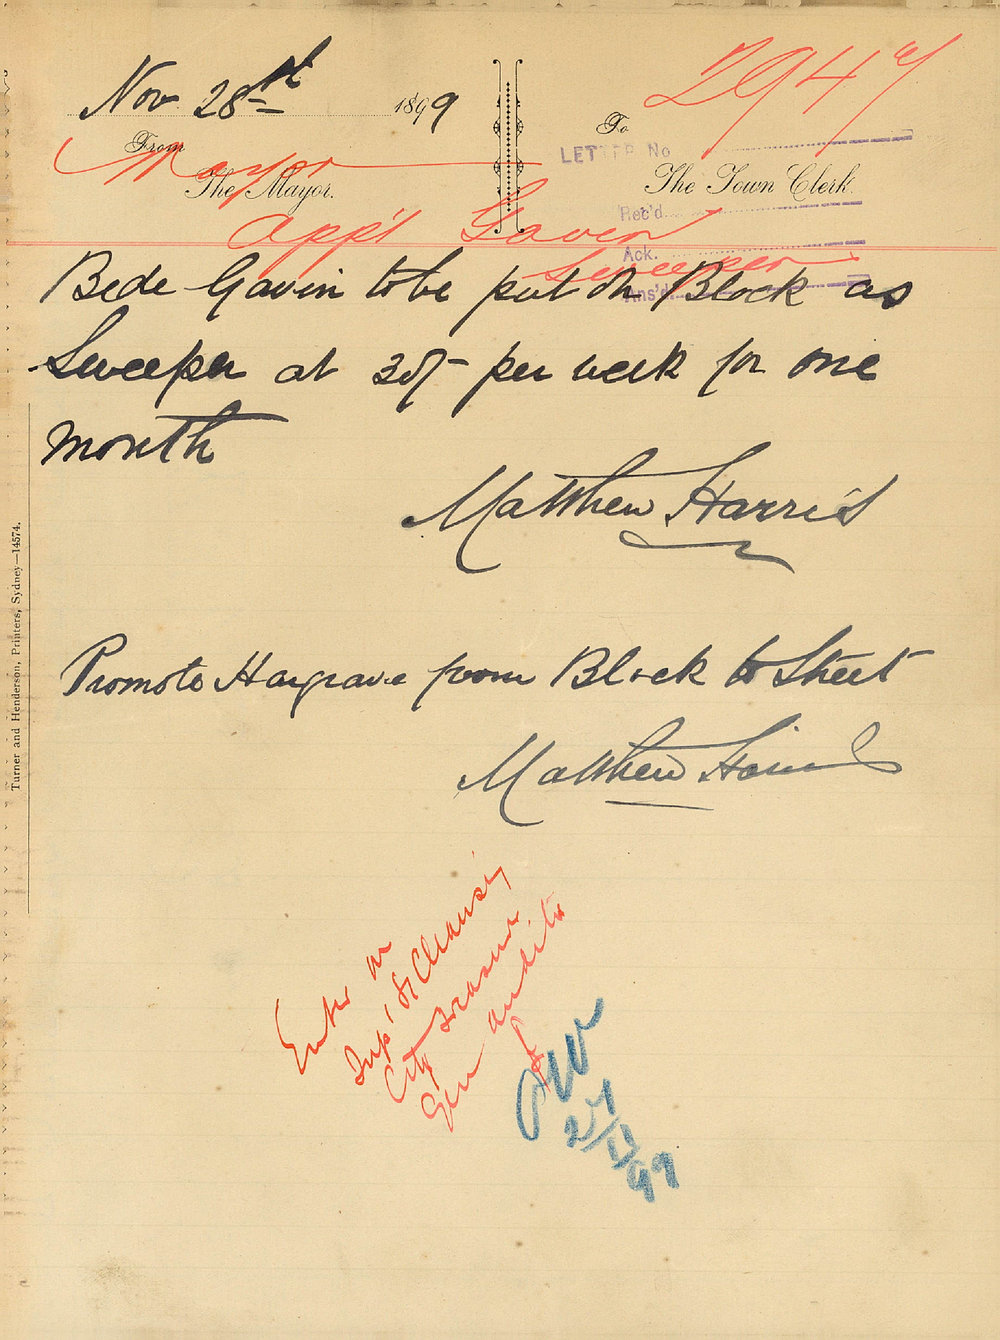 Nov 28th 1899
2947
From
To
Mayor
LETTER No
The Mayor.
The Town Clerk.
Rec'd
App't Gavin
Ack.
Sweeper
Ans'd
Bede Gavin to be put on Block as
Sweeper at 30/- per week for one
month
Matthew Harris
Promote Hargrave from Block to Street
Matthew Harris
Insp' of Cleansing
City Treasurer
Gen auditor
Turner and Henderson, Printers, Sydney—14574.